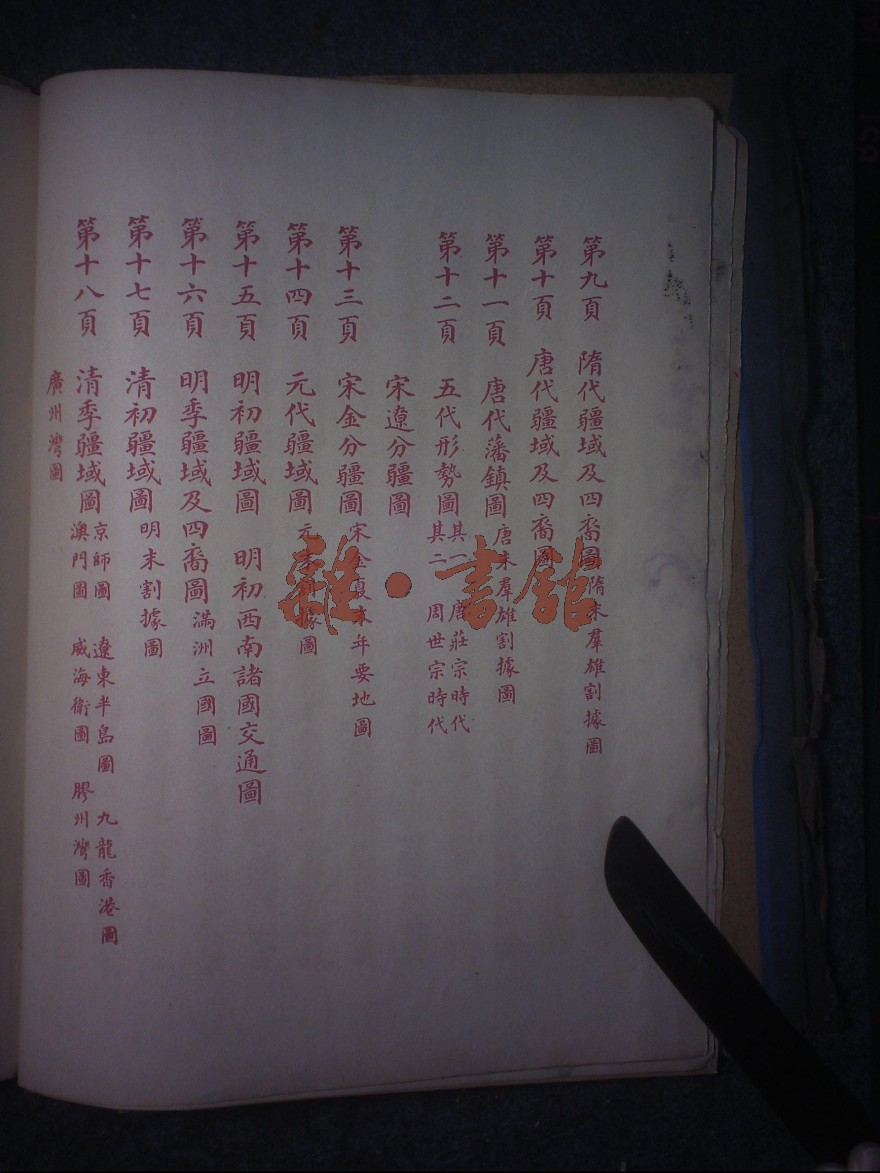 第九頁 隋代疆域及四裔圖 隋末羣雄割據圖
第十頁 唐代疆域及四裔圖
第十一頁 唐代藩鎮圖 唐末羣雄割據圖
第十二頁 五代形勢圖 其一 唐莊宗時代
其二 周世宗時代
宋遼分疆圖
第十三頁 宋金分疆圖 宋金夏末年要地圖
第十四頁 元代疆域圖 元末割據圖
第十五頁 明初疆域圖 明初西南諸國交通圖
第十六頁 明季疆域及四裔圖 滿洲立國圖
第十七頁 清初疆域圖 明末割據圖
第十八頁 清季疆域圖 京師圖 遼東半島圖 九龍香港圖
澳門圖 威海衛圖 膠州灣圖
廣州灣圖
雜·書館